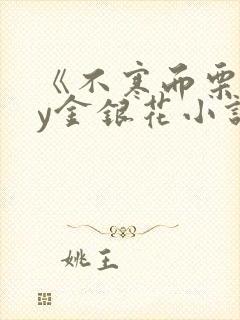 《不寒而栗
y金银花小说
姚王